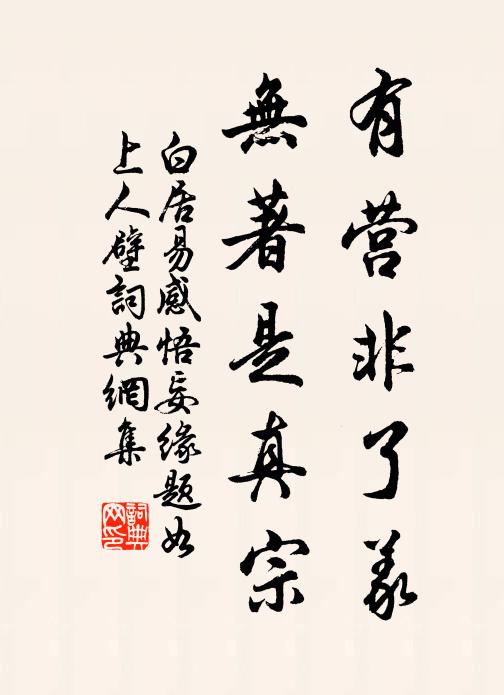 有营非了義
無著是真宗
白居易感悟妄緣題如
上人壁詞典網集
詞典
网印